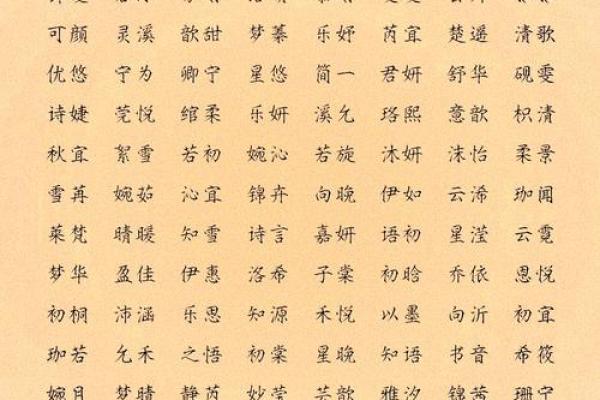 可颜 灵溪 歆甜 梦綦 乐妤 芮宜 楚遥 清歌
优悠 宁为 卿宁 星悠 简一 君妍 舒华 砚雯
诗婕 莞悦 绾柔 乐妍 溪允 珞熙 意歆 枳清
秋宜 絮雪 若初 婉沁 若旋 沐妍 沫怡 柔景
雪苒 婉茹 沁宜 锦卉 向晚 伊如 云浠 珈闻
莱梵 晴暖 知雪 诗言 嘉妍 语初 星滢 云霓
梦华 盈佳 伊惠 洛希 子棠 初晗 乔依 恩悦
初桐 沛涵 乐思 知源 禾悦 以墨 向沂 初宜
珈若 允禾 之悟 初棠 星晚 知语 书音 希筱
婉月 梦晴 静芮 妙莹 芸歆 雅汐 锦茜 珊宁